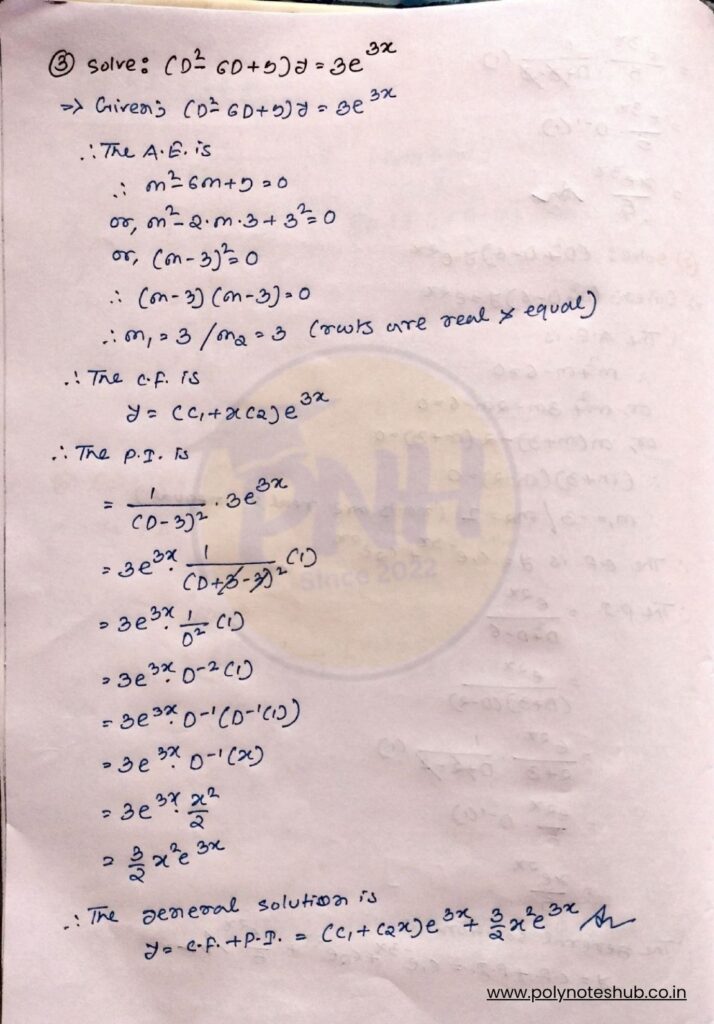 ③ Solve: (D²- 6D+5)y = 3e^3x
=> Given; (D²- 6D+5)y = 3e^3x
∴ The A.E. is
∴ m²-6m+5=0
or, m²-2·m·3+3²=0
or, (m-3)²=0
∴ (m-3)(m-3)=0
∴ m₁=3 / m₂=3 (roots are real & equal)
∴ The C.F. is
y = (C₁+xC₂)e^3x
∴ The P.I. is
= 1/(D-3)² · 3e^3x
= 3e^3x · 1/(D+3-3)² (1)
= 3e^3x · 1/D² (1)
= 3e^3x · D^-2 (1)
= 3e^3x · D^-1(D^-1(1))
= 3e^3x · D^-1(x)
= 3e^3x · x²/2
= 3/2 x²e^3x
∴ The general solution is
y = C.F. + P.I. = (C₁+C₂x)e^3x + 3/2 x²e^3x
PNH
Since 2022
www.polynoteshub.co.in